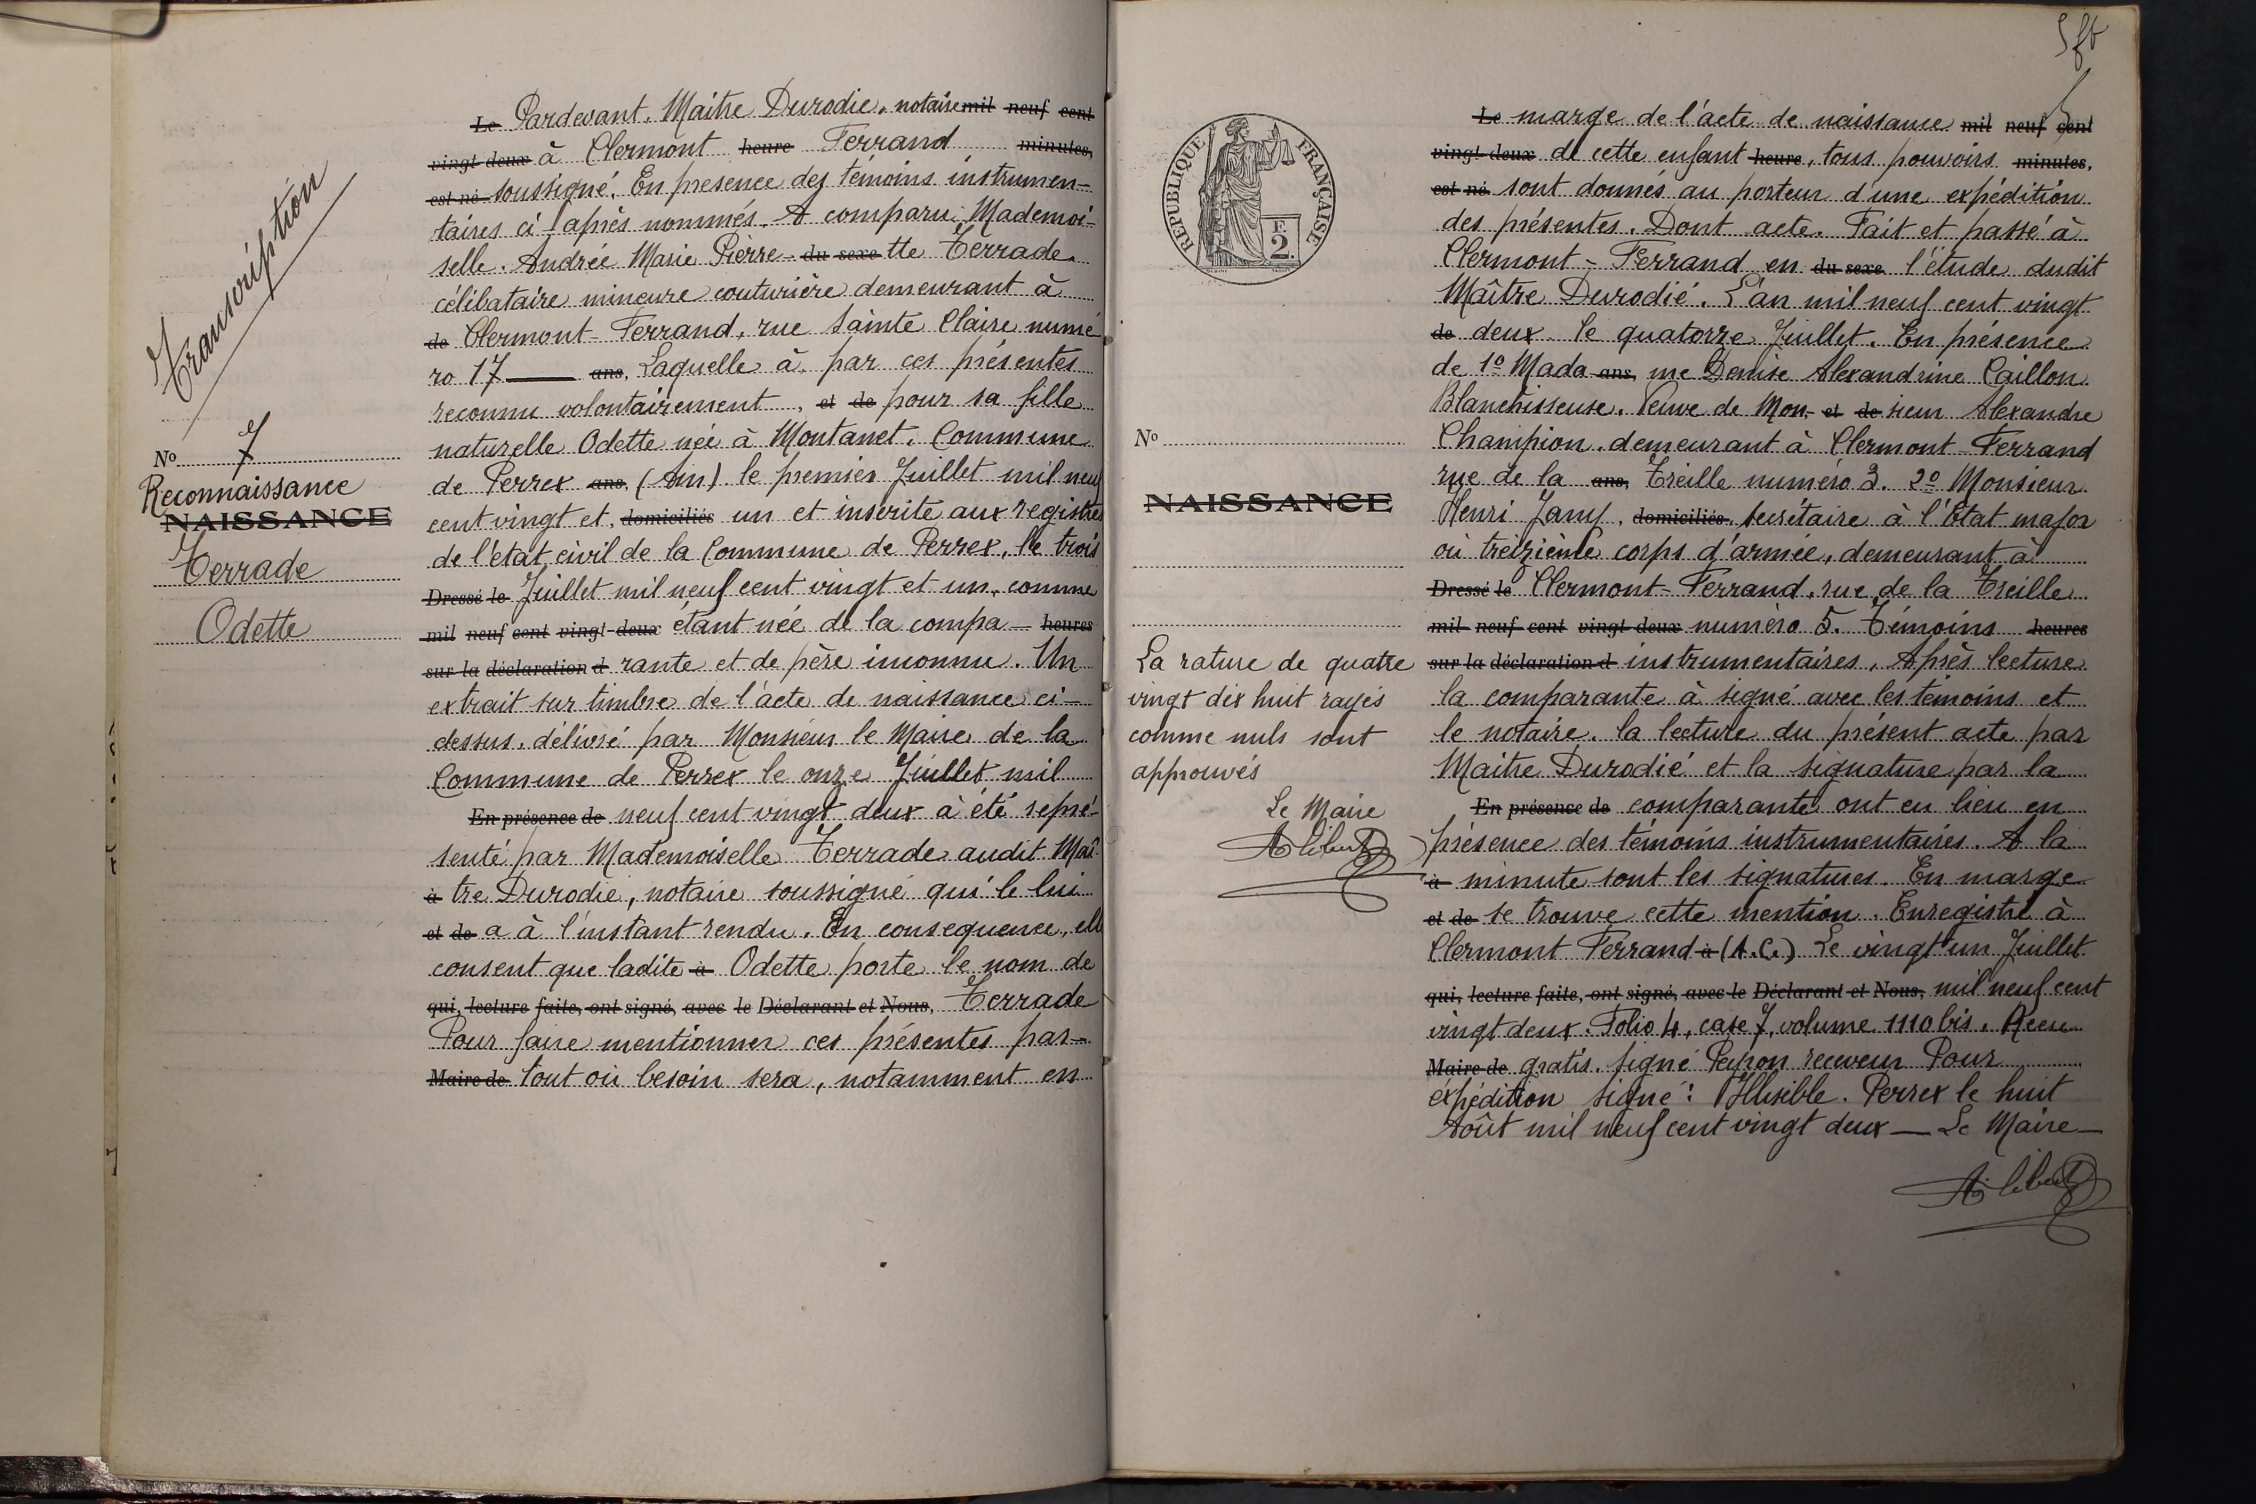 Transcription
N° 7
Reconnaissance
NAISSANCE
Terrade
Odette
Le Pardevant. Maitre Durodie. notaire mil neuf cent
vingt-deux à Clermont heure Ferrand minutes,
est né soussigné. En presence des témoins instrumen-
taires ci après nommés. A comparu Mademoi-
selle. Andrée Marie Pierre du sexe tte Terrade.
célibataire mineure couturière demeurant à
de Clermont-Ferrand, rue Sainte Claire numé
ro 17 — ans, Laquelle à par ces présentes
reconnu volontairement, et de pour sa fille
naturelle Odette née à Montanet. Commune
de Perrex ans, (Ain) le premier Juillet mil neuf
cent vingt et, domiciliés un et inscrite aux registres
de l'état civil de la Commune de Perrex, le trois
Dressé le Juillet mil neuf cent vingt et un, comme
mil neuf cent vingt-deux étant née de la compa- heures
sur la déclaration d rante et de père inconnu. Un
extrait sur timbre de l'acte de naissance ci-
dessus, délivré par Monsieur le Maire de la
Commune de Perrex le onze Juillet mil
En présence de neuf cent vingt deux à été repré-
senté par Mademoiselle Terrade audit Maî-
à tre Durodie, notaire soussigné qui le lui
et de a à l'instant rendu. En consequence, elle
consent que ladite à Odette porte le nom de
qui, lecture faite, ont signé, avec le Déclarant et Nous, Terrade
Pour faire mentionner ces présentes par-
Maire de tout où besoin sera, notamment en
REPUBLIQUE FRANÇAISE
F.
2.
N°
NAISSANCE
La rature de quatre
vingt dix huit rayés
comme nuls sont
approuvés
Le Maire
Le marge de l'acte de naissance mil neuf cent
vingt-deux de cette enfant heure, tous pouvoirs minutes,
est né sont donnés au porteur d'une expédition
des présentes. Dont acte. Fait et passé à
Clermont-Ferrand en du sexe l'étude dudit
Maître Durodié. L'an mil neuf cent vingt
de deux le quatorze Juillet. En présence
de 1° Mada ans, me Denise Alexandrine Caillon
Blanchisseuse. Veuve de Mon- et de sieur Alexandre
Champion. demeurant à Clermont-Ferrand
rue de la ans, Treille numéro 3. 2° Monsieur
Henri Jany, domiciliés secrétaire à l'Etat major
où treizième corps d'armée, demeurant à
Dressé le Clermont-Ferrand, rue de la Treille
mil neuf cent vingt-deux numéro 5. Témoins heures
sur la déclaration d instrumentaires. Après lecture
la comparante à signé avec les témoins et
le notaire. la lecture du présent acte par
Maitre Durodié et la signature par la
En présence de comparante ont eu lieu en
présence des témoins instrumentaires. A la
à minute sont les signatures. En marge
et de se trouve cette mention. Enregistré à
Clermont Ferrand à (A.C.) Le vingt un Juillet
qui, lecture faite, ont signé, avec le Déclarant et Nous, mil neuf cent
vingt deux. Folio 4, case 7, volume 1110 bis. Recu
Maire de gratis. signé receveur Pour
expédition signé: Illisible. Perrex le huit
Août mil neuf cent vingt deux — Le Maire —